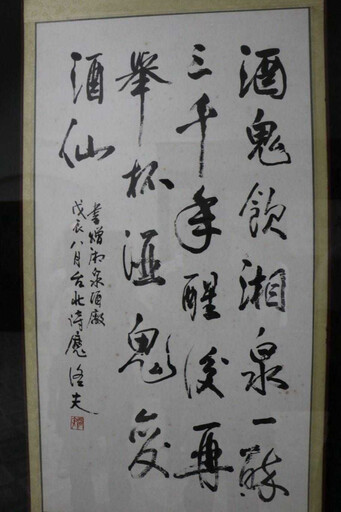 酒鬼飲湘泉一醉
三千年醒後再
舉杯酒鬼變
酒仙
書贈湘泉酒廠
戊辰八月台北詩魔洛夫